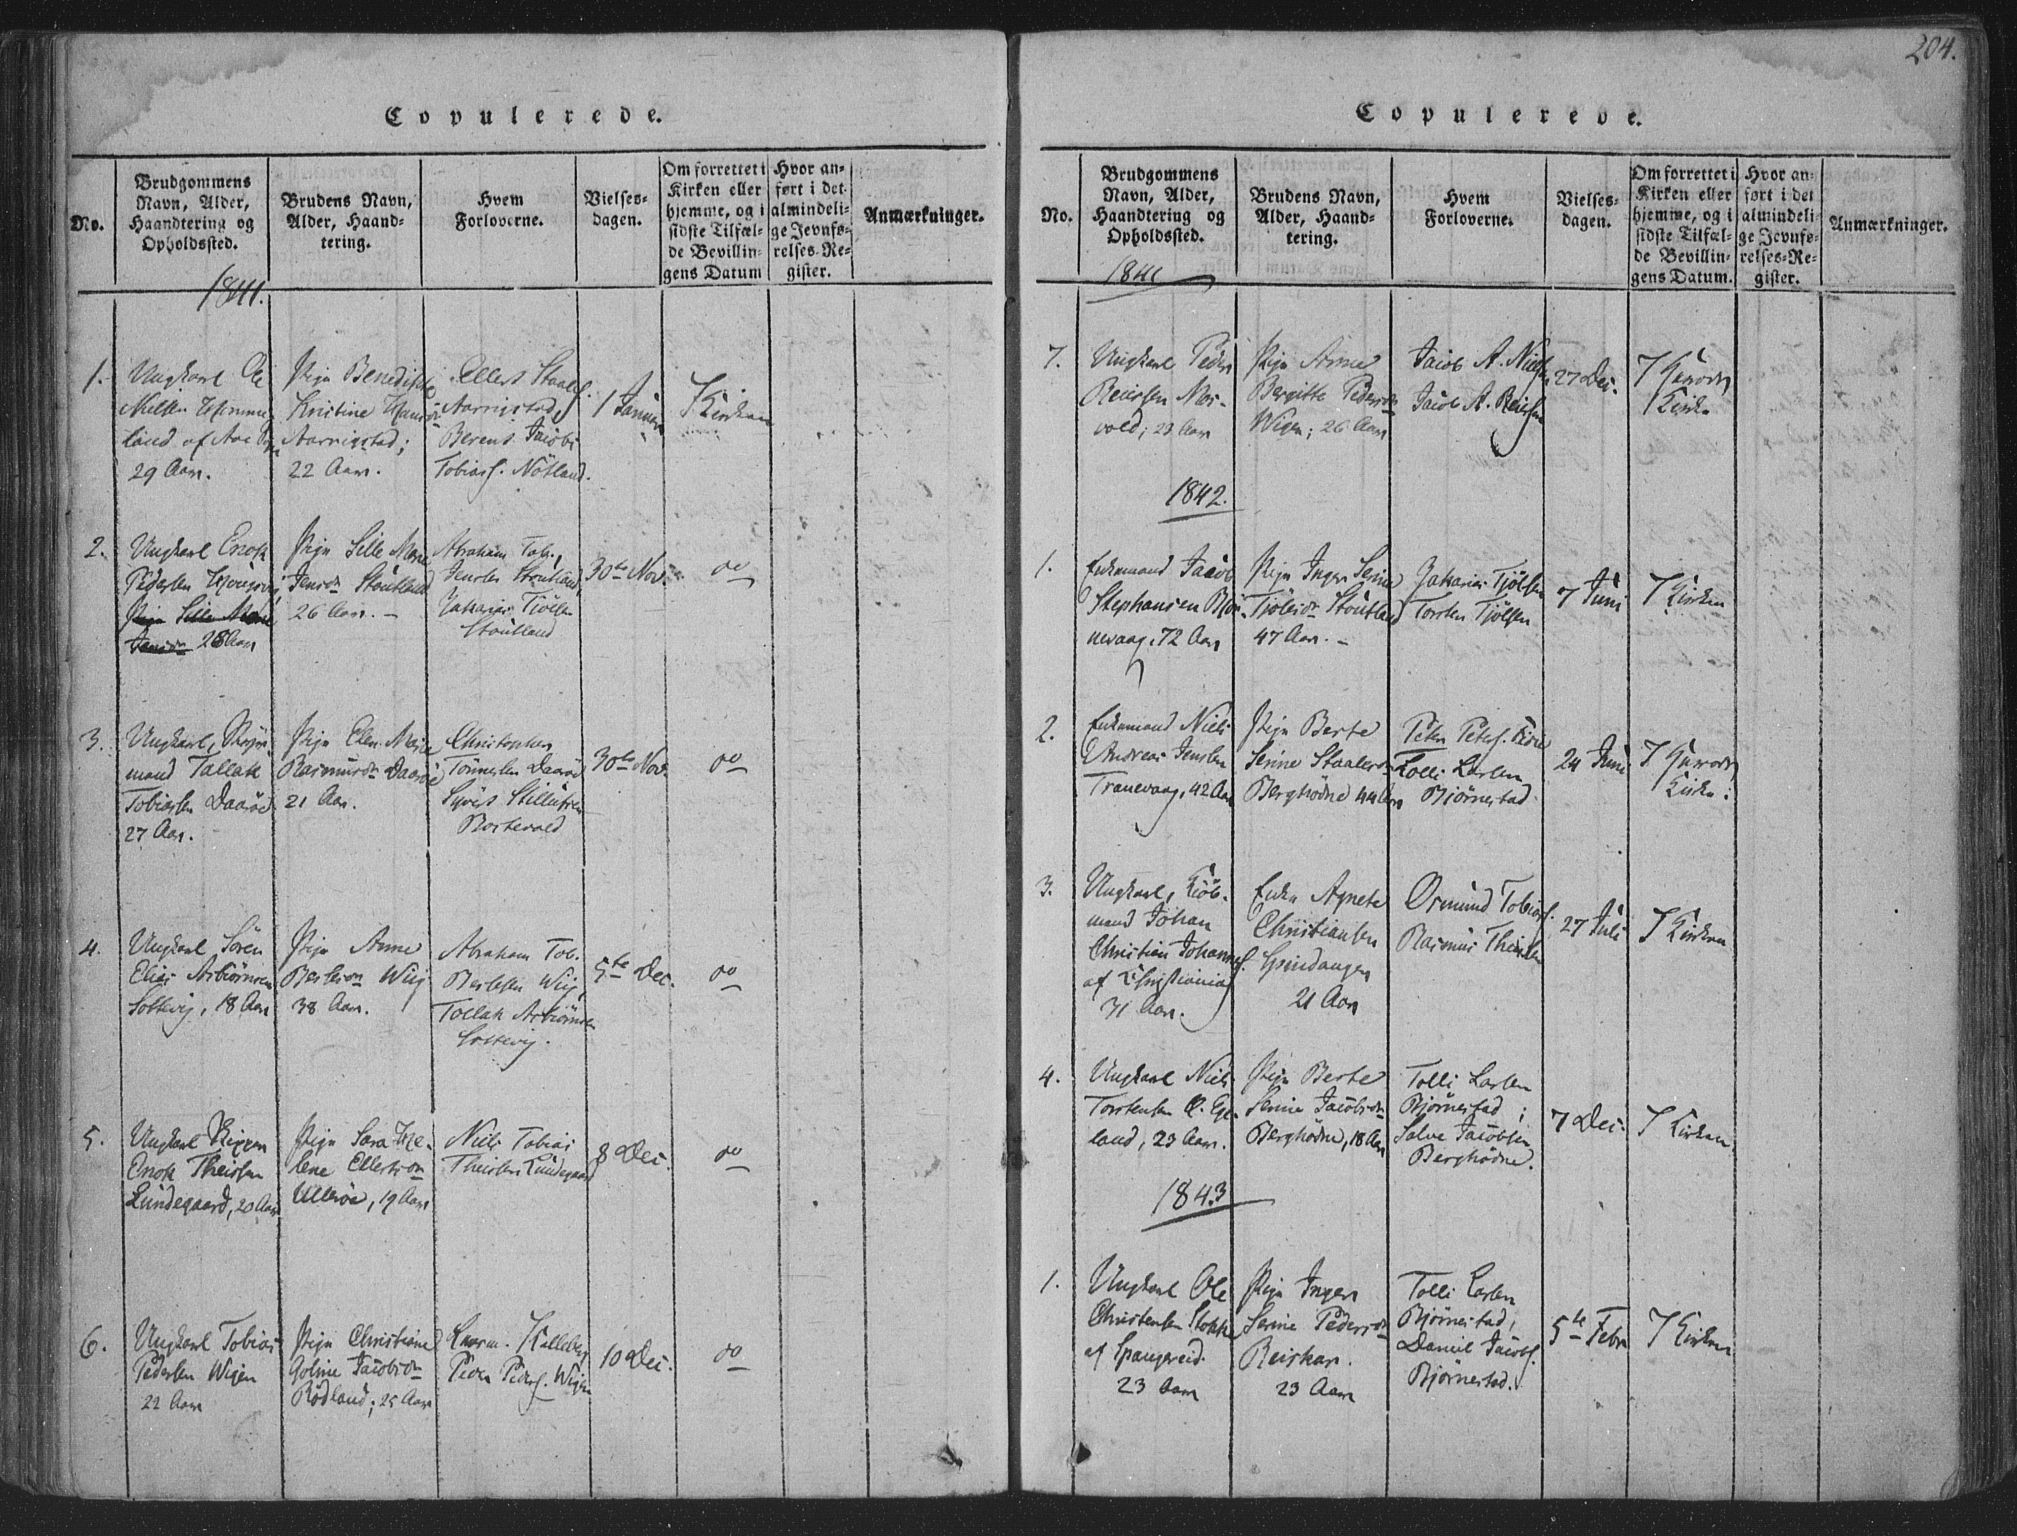 204.
Copulerede.
No.
Brudgommens
Navn, Alder,
Haandtering og
Opholdssted.
Brudens Navn,
Alder, Haand-
tering.
Hvem
Forloverne.
Vielses-
dagen.
Om forrettet i
Kirken eller
hjemme, og i
sidste Tilfæl-
de Bevillin-
gens Datum
Hvor an-
ført i det
almindeli-
ge Jevnfø-
relses-Re-
gister.
Anmærkninger.
1841.
1.
Ungkarl Ole
Nielsen
land af
29 Aar.
Pige Benedikte
Kristine
Aarnigstad;
22 Aar.
Ellert Staalf.
Aarnigstad,
Berent Jacob
Tobiasf. Nötland.
1 Januar
I Kirken
2.
Ungkarl Enok
Pedersen
Pige Sille Marie
Jensdr 28 Aar
Pige Sille Marie
Jensdr Stoutland
26 Aar. –
Abraham Tob.,
Jensen Stoutland,
Zakarias Tiölsen
Stoutland
30te Nov.
oo
3.
Ungkarl,
mand Tallak
Tobiassen Daaröe
27 Aar.
Pige Elen Marie
Rasmusdr Daaröe
21 Aar.
Christopher
Tönnessen Daaröe
Syvert Stillufsen
30te Nov.
oo
4.
Ungkarl Sören
Elias Arbiörnsen
18 Aar
Pige Anne
Berlesdr Wiig
38 Aar.
Abraham Tob.
Berlesen Wiig,
Tollak Arbiörnsen
5te Dec.
oo
5.
Ungkarl
Enok Theissen
Lundegaard, 20 Aar
Pige Sara He-
lene Ellertsdr
Ulleröe, 19 Aar
Niels Tobias
Theissen Lundegaard
8 Dec.
oo
6.
Ungkarl Tobias
Pedersen Wigen
22 Aar
Pige Christiane
Goline Jacobsdr
Rödland; 25 Aar
Kalleberg
Peder Pedersf. Wigen
10 Dec.
oo
Copulerede.
No.
Brudgommens
Navn, Alder,
Haandtering og
Opholdssted.
Brudens Navn,
Alder, Haand-
tering.
Hvem
Forloverne.
Vielses-
dagen.
Om forrettet i
Kirken eller
hjemme, og i
sidste Tilfæl-
de Bevillin-
gens Datum.
Hvor an-
ført i det
almindeli-
ge Jevnfø-
relses-Re-
gister.
Anmærkninger.
1841
7.
Ungkarl Peder
Reiersen Mos-
vold; 23 Aar
Pige Anne
Bergitte Pedersdr
Wigen; 26 Aar
Jacob A. Nielsen
Jacob A. Reiersen
27 Dec.
I
Kirke
1842.
1.
Enkemand Jacob
Stephansen
nevaag, 72 Aar
Pige Inger Serine
Tjölsdr Stoutland
47 Aar. –
Zakarias Tjölsen
Torsten Tjölsen
7 Juni
I Kirken
2.
Enkemand Niels
Andreas Jensen
Tranevaag, 42 Aar
Pige Berte
Serine Staalesdr
Berghödne 44 Aar
Peter Petersf.
Tolli Larsen
Bjørnestad
24 Juni
I
Kirke.
3.
Ungkarl, Kiöb-
mand Johan
Christian Johannesf.
af Christiania
31 Aar.
Enke Agnete
Christiansen
Spindangen
21 Aar
Osmund Tobiasf.
Rasmus Theissen
27 Juli
I Kirken
4.
Ungkarl Niels
Torstensen
land, 23 Aar.
Pige Berte
Serine Jacobsdr
Berghödne, 18 Aar
Tolli Larsen
Bjørnestad;
Salve Jacobsen
Berghödne.
7 Dec.
I Kirken
1843
1.
Ungkarl Ole
Christensen Stokke
af Spangereid.
23 Aar
Pige Inger
Serine Pedersdr
Reirkar.
23 Aar
Tolli Larsen
Bjørnestad,
Daniel Jacobf.
Bjørnestad.
5te Febr
I Kirken